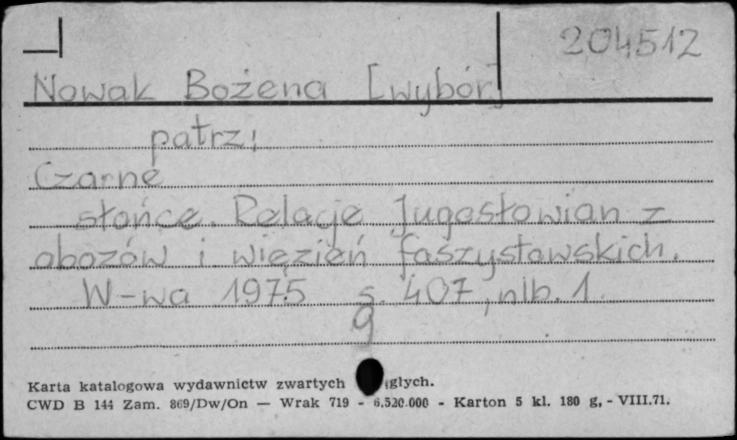 204512
Nowak Bożena [wybór]
patrz:
Czarne
słońce. Relacje Jugosłowian z
obozów i więzień faszystowskich.
W-wa 1975 s. 407, nlb. 1.
g
Karta katalogowa wydawnictw zwartych
CWD B 144 Zam. 869/Dw/On — Wrak 719 - 6.520.000 - Karton 5 kl. 180 g, - VIII.71.